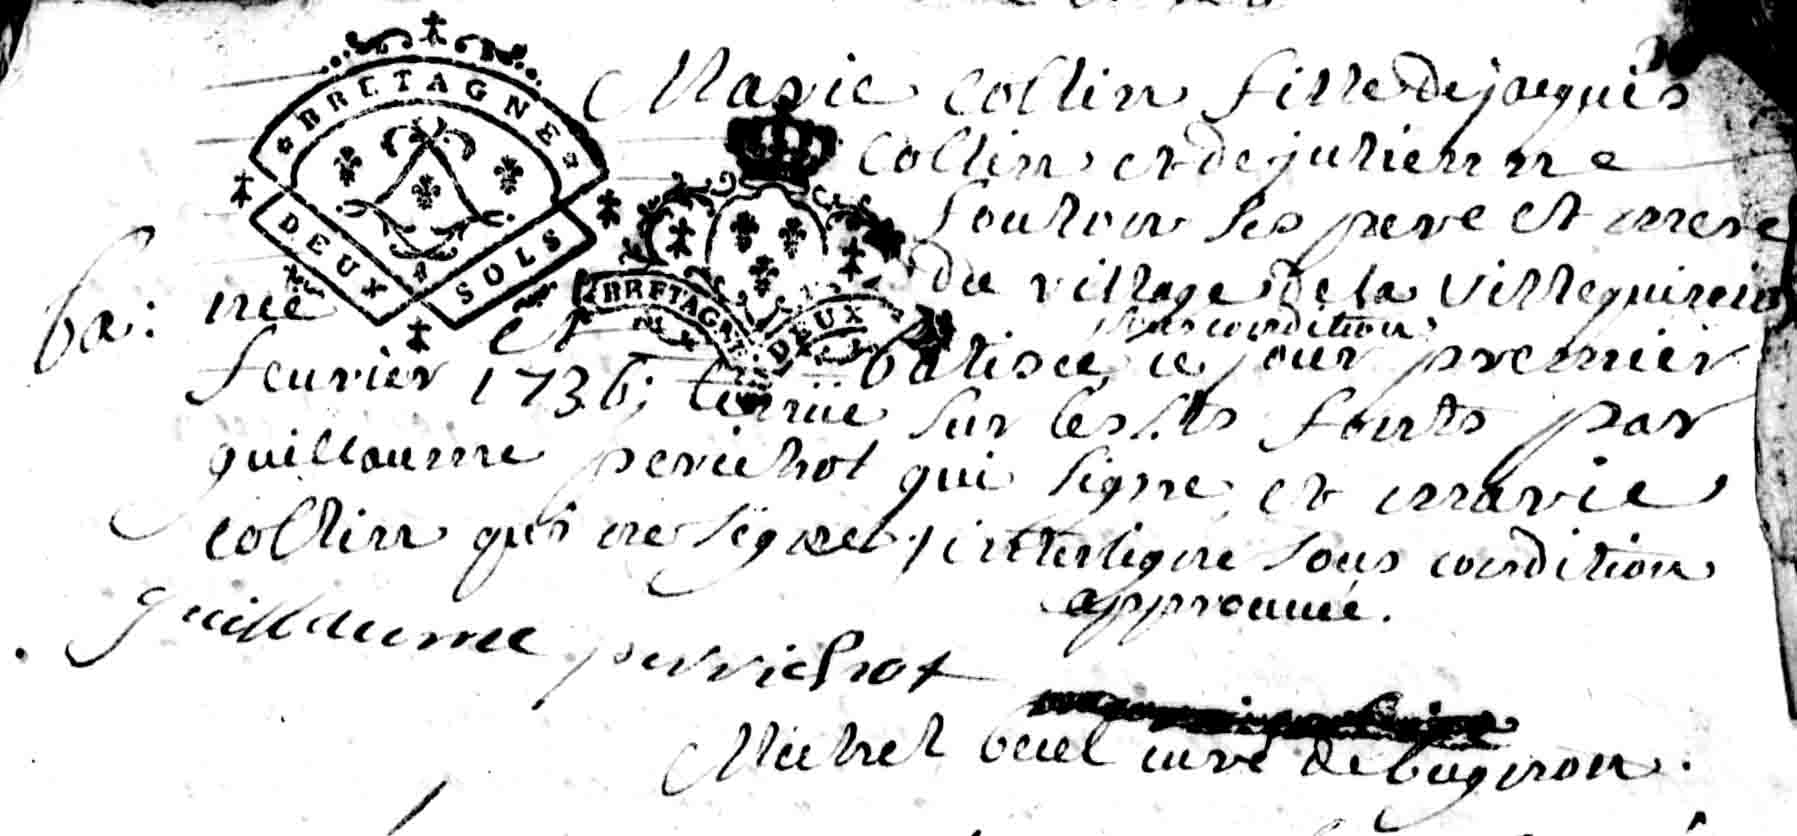 BRETAGNE
DEUX SOLS
BRETAGNE DEUX
Marie Collin fille de jacques
Collin et de julienne
ses pere et mere
ba: du village de la
née et batisée sous condition ce jour premier
feuvrier 1736; tenüe sur les sts fonts par
guillaume perichot qui signe et marie
collin qui ne signe, / interligne sous condition
approuvée.
guillaume perrichot
Michel curé de bugiron.